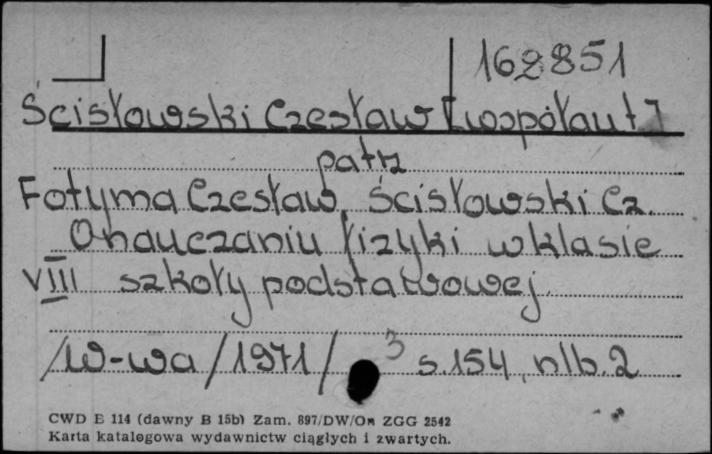 162851
Ścisłowski Czesław [współaut.]
patrz
Fotyma Czesław, Ścisłowski Cz.
O nauczaniu fizyki w klasie
VIII szkoły podstawowej
/W-wa/1971/ 3 s.154, nlb.2
CWD E 114 (dawny B 15b) Zam. 897/DW/Om ZGG 2542
Karta katalogowa wydawnictw ciągłych i zwartych.